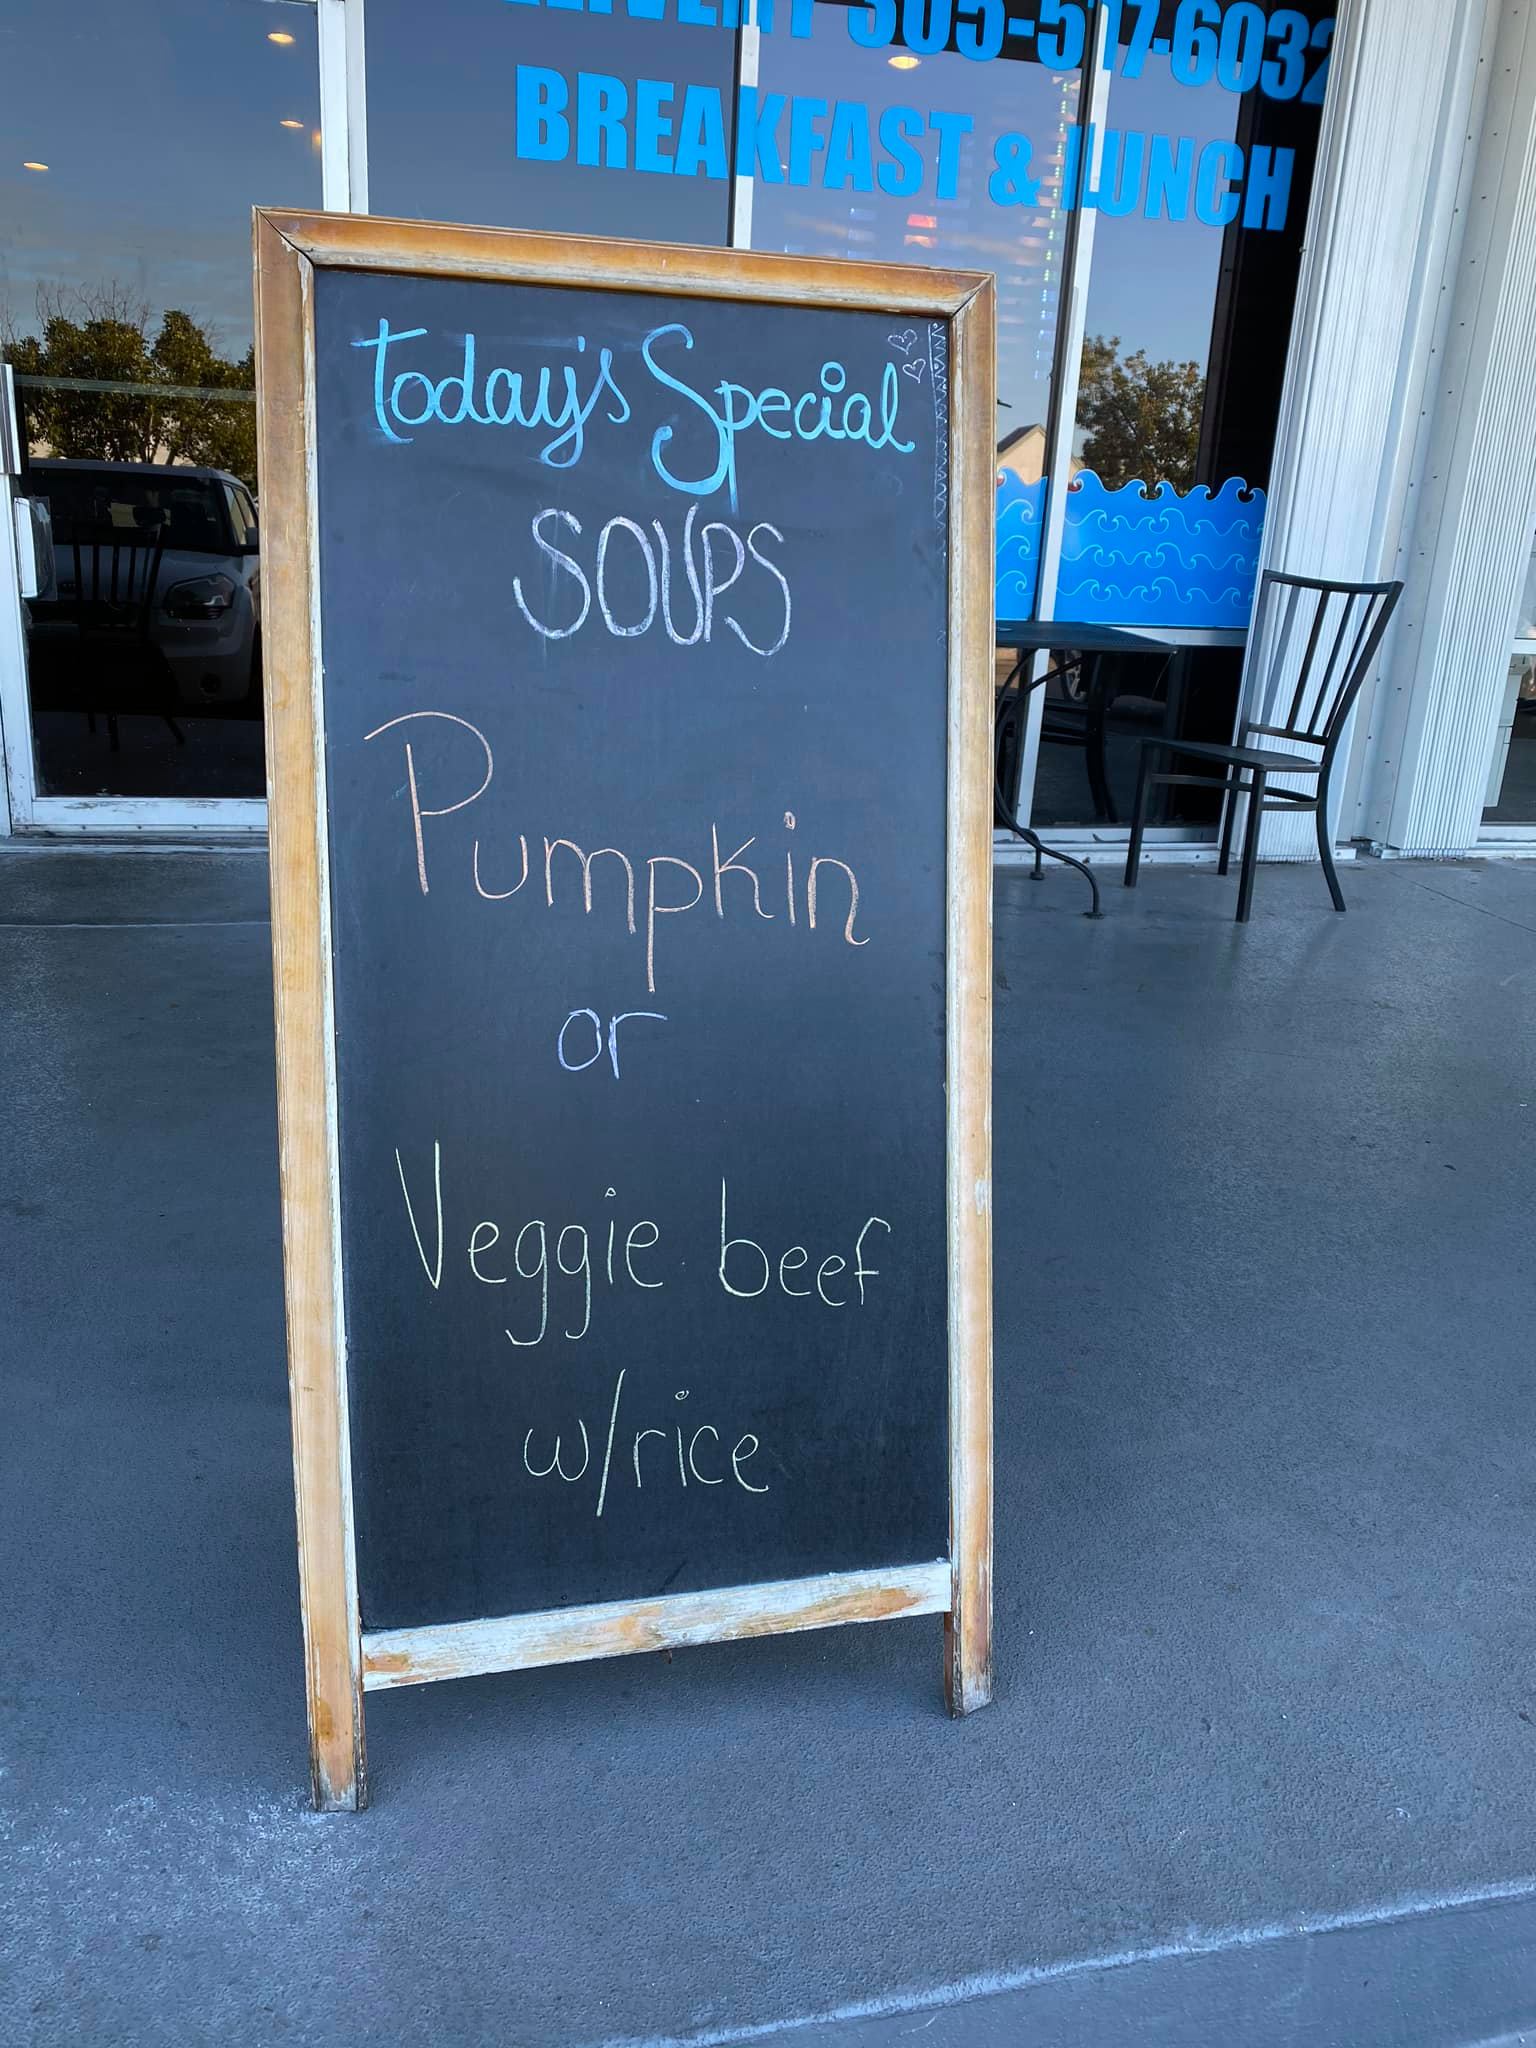 305-517-6032
BREAKFAST & LUNCH
Today's Special
SOUPS
Pumpkin
or
Veggie beef
w/rice